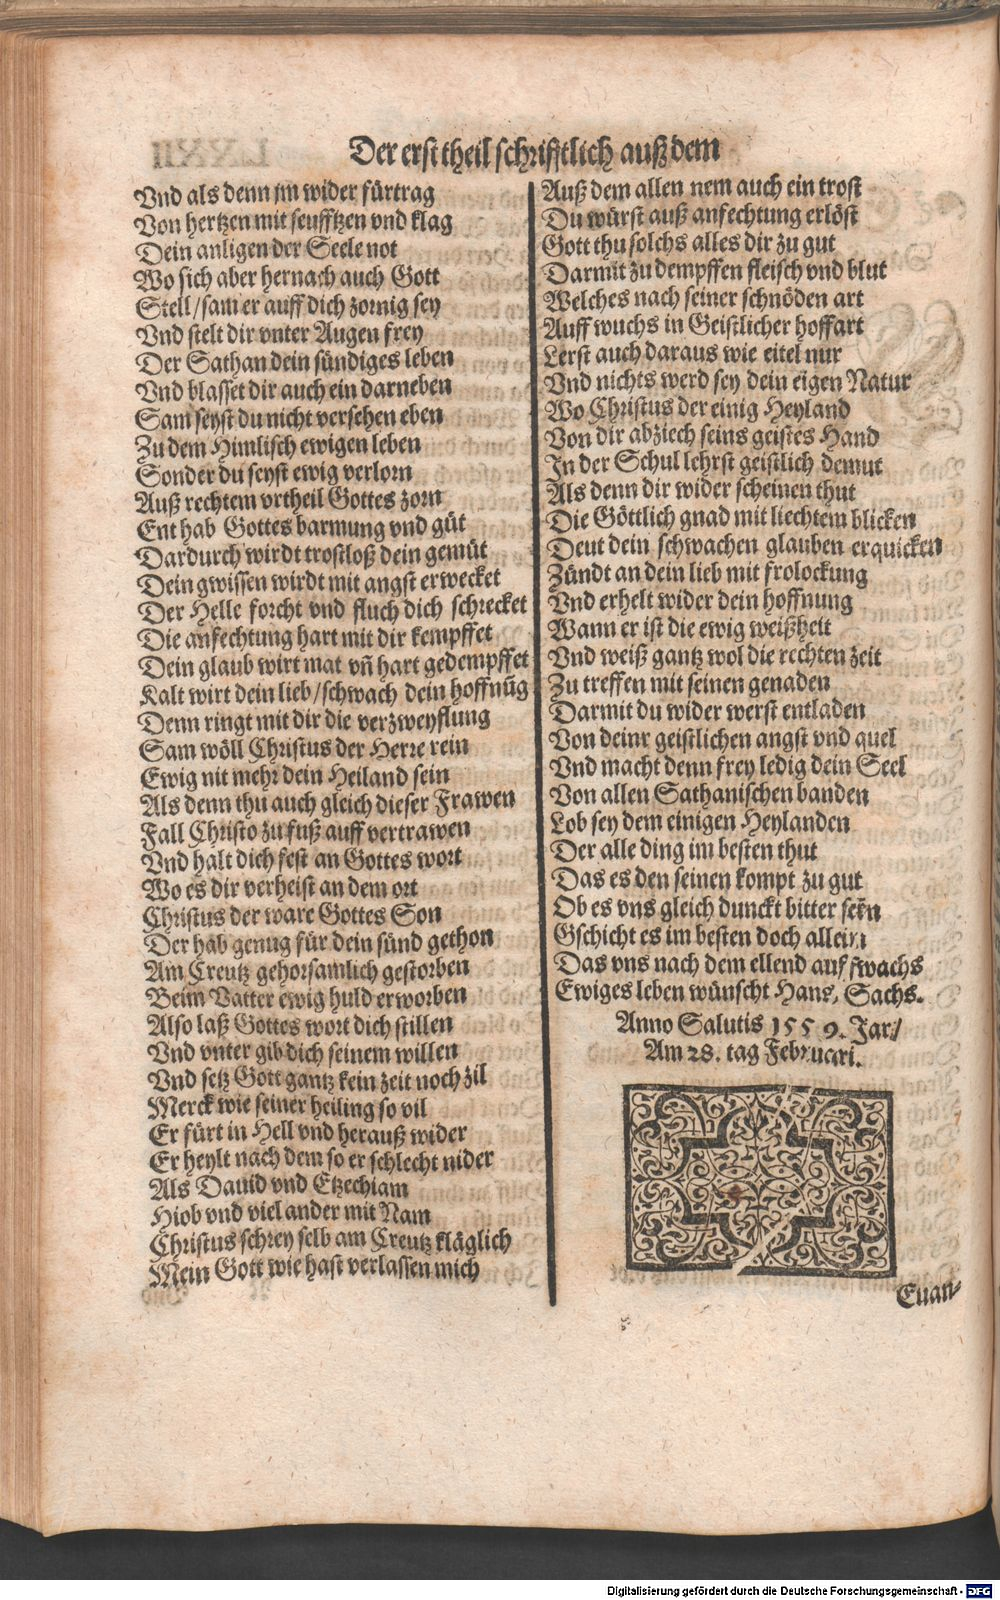 Der erst theil schrifftlich auß dem
Vnd als denn jm wider fürtrag
Von hertzen mit seufftzen vnd klag
Dein anligen der Seele not
Wo sich aber hernach auch Gott
Stell / sam er auff dich zornig sey
Vnd stelt dir vnter Augen frey
Der Sathan dein sündiges leben
Vnd blasset dir auch ein darneben
Sam seyst du nicht versehen eben
Zu dem Himlisch ewigen leben
Sonder du seyst ewig verlorn
Auß rechtem vrtheil Gottes zorn
Ent hab Gottes barmung vnd güt
Dardurch wirdt trostloß dein gemüt
Dein gwissen wirdt mit angst erwecket
Der Helle forcht vnd fluch dich schrecket
Die anfechtung hart mit dir kempffet
Dein glaub wirt mat vñ hart gedempffet
Kalt wirt dein lieb / schwach dein hoffnũg
Denn ringt mit dir die verzweyflung
Sam wöll Christus der Herre rein
Ewig nit mehr dein Heiland sein
Als denn thu auch gleich dieser Frawen
Fall Christo zu fuß auff vertrawen
Vnd halt dich fest an Gottes wort
Wo es dir verheist an dem ort
Christus der ware Gottes Son
Der hab genug für dein sünd gethon
Am Creutz gehorsamlich gestorben
Beim Vatter ewig huld erworben
Also laß Gottes wort dich stillen
Vnd vnter gib dich seinem willen
Vnd setz Gott gantz kein zeit noch zil
Merck wie seiner heiling so vil
Er fürt in Hell vnd herauß wider
Er heylt nach dem so er schlecht nider
Als Dauid vnd Etzechiam
Hiob vnd viel ander mit Nam
Christus schrey selb am Creutz kläglich
Mein Gott wie hast verlassen mich
Auß dem allen nem auch ein trost
Du würst auß anfechtung erlöst
Gott thu solchs alles dir zu gut
Darmit zu dempffen fleisch vnd blut
Welches nach seiner schnöden art
Auff wuchs in Geistlicher hoffart
Lerst auch daraus wie eitel nur
Vnd nichts werd sey dein eigen Natur
Wo Christus der einig Heyland
Von dir abziech seins geistes Hand
In der Schul lehrst geistlich demut
Als denn dir wider scheinen thut
Die Göttlich gnad mit liechtem blicken
Deut dein schwachen glauben erquicken
Zündt an dein lieb mit frolockung
Vnd erhelt wider dein hoffnung
Wann er ist die ewig weißheit
Vnd weiß gantz wol die rechten zeit
Zu treffen mit seinen genaden
Darmit du wider werst entladen
Von deinr geistlichen angst vnd quel
Vnd macht denn frey ledig dein Seel
Von allen Sathanischen banden
Lob sey dem einigen Heylanden
Der alle ding im besten thut
Das es den seinen kompt zu gut
Ob es vns gleich dunckt bitter sein
Gschicht es im besten doch allein
Das vns nach dem ellend auf wachs
Ewiges leben wünscht Hans, Sachs.
Anno Salutis 1559. Jar /
Am 28. tag Februari.
Euan-
Digitalisierung gefördert durch die Deutsche Forschungsgemeinschaft - DFG